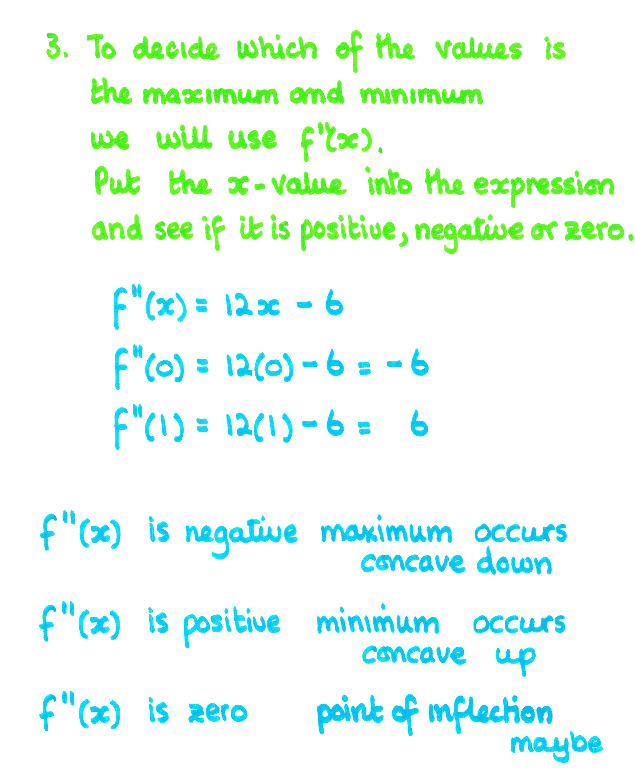 3. To decide which of the values is
the maximum and minimum
we will use f"(x).
Put the x-value into the expression
and see if it is positive, negative or zero.
f"(x) = 12x - 6
f"(0) = 12(0) - 6 = - 6
f"(1) = 12(1) - 6 = 6
f"(x) is negative maximum occurs
concave down
f"(x) is positive minimum occurs
concave up
f"(x) is zero point of inflection
maybe